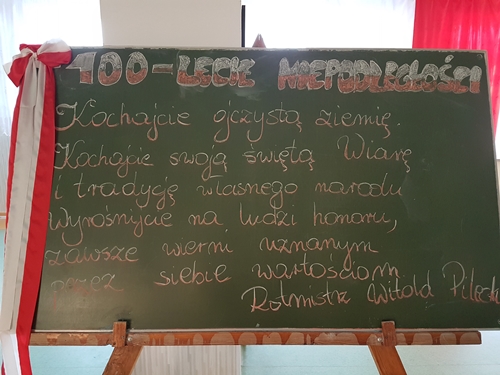 100-LECIE NIEPODLEGŁOŚCI
Kochajcie ojczystą ziemię.
Kochajcie swoją świętą Wiarę
i tradycję własnego narodu
Wyrośnijcie na ludzi honoru,
zawsze wierni uznanym
przez siebie wartościom
Rotmistrz Witold Pileck